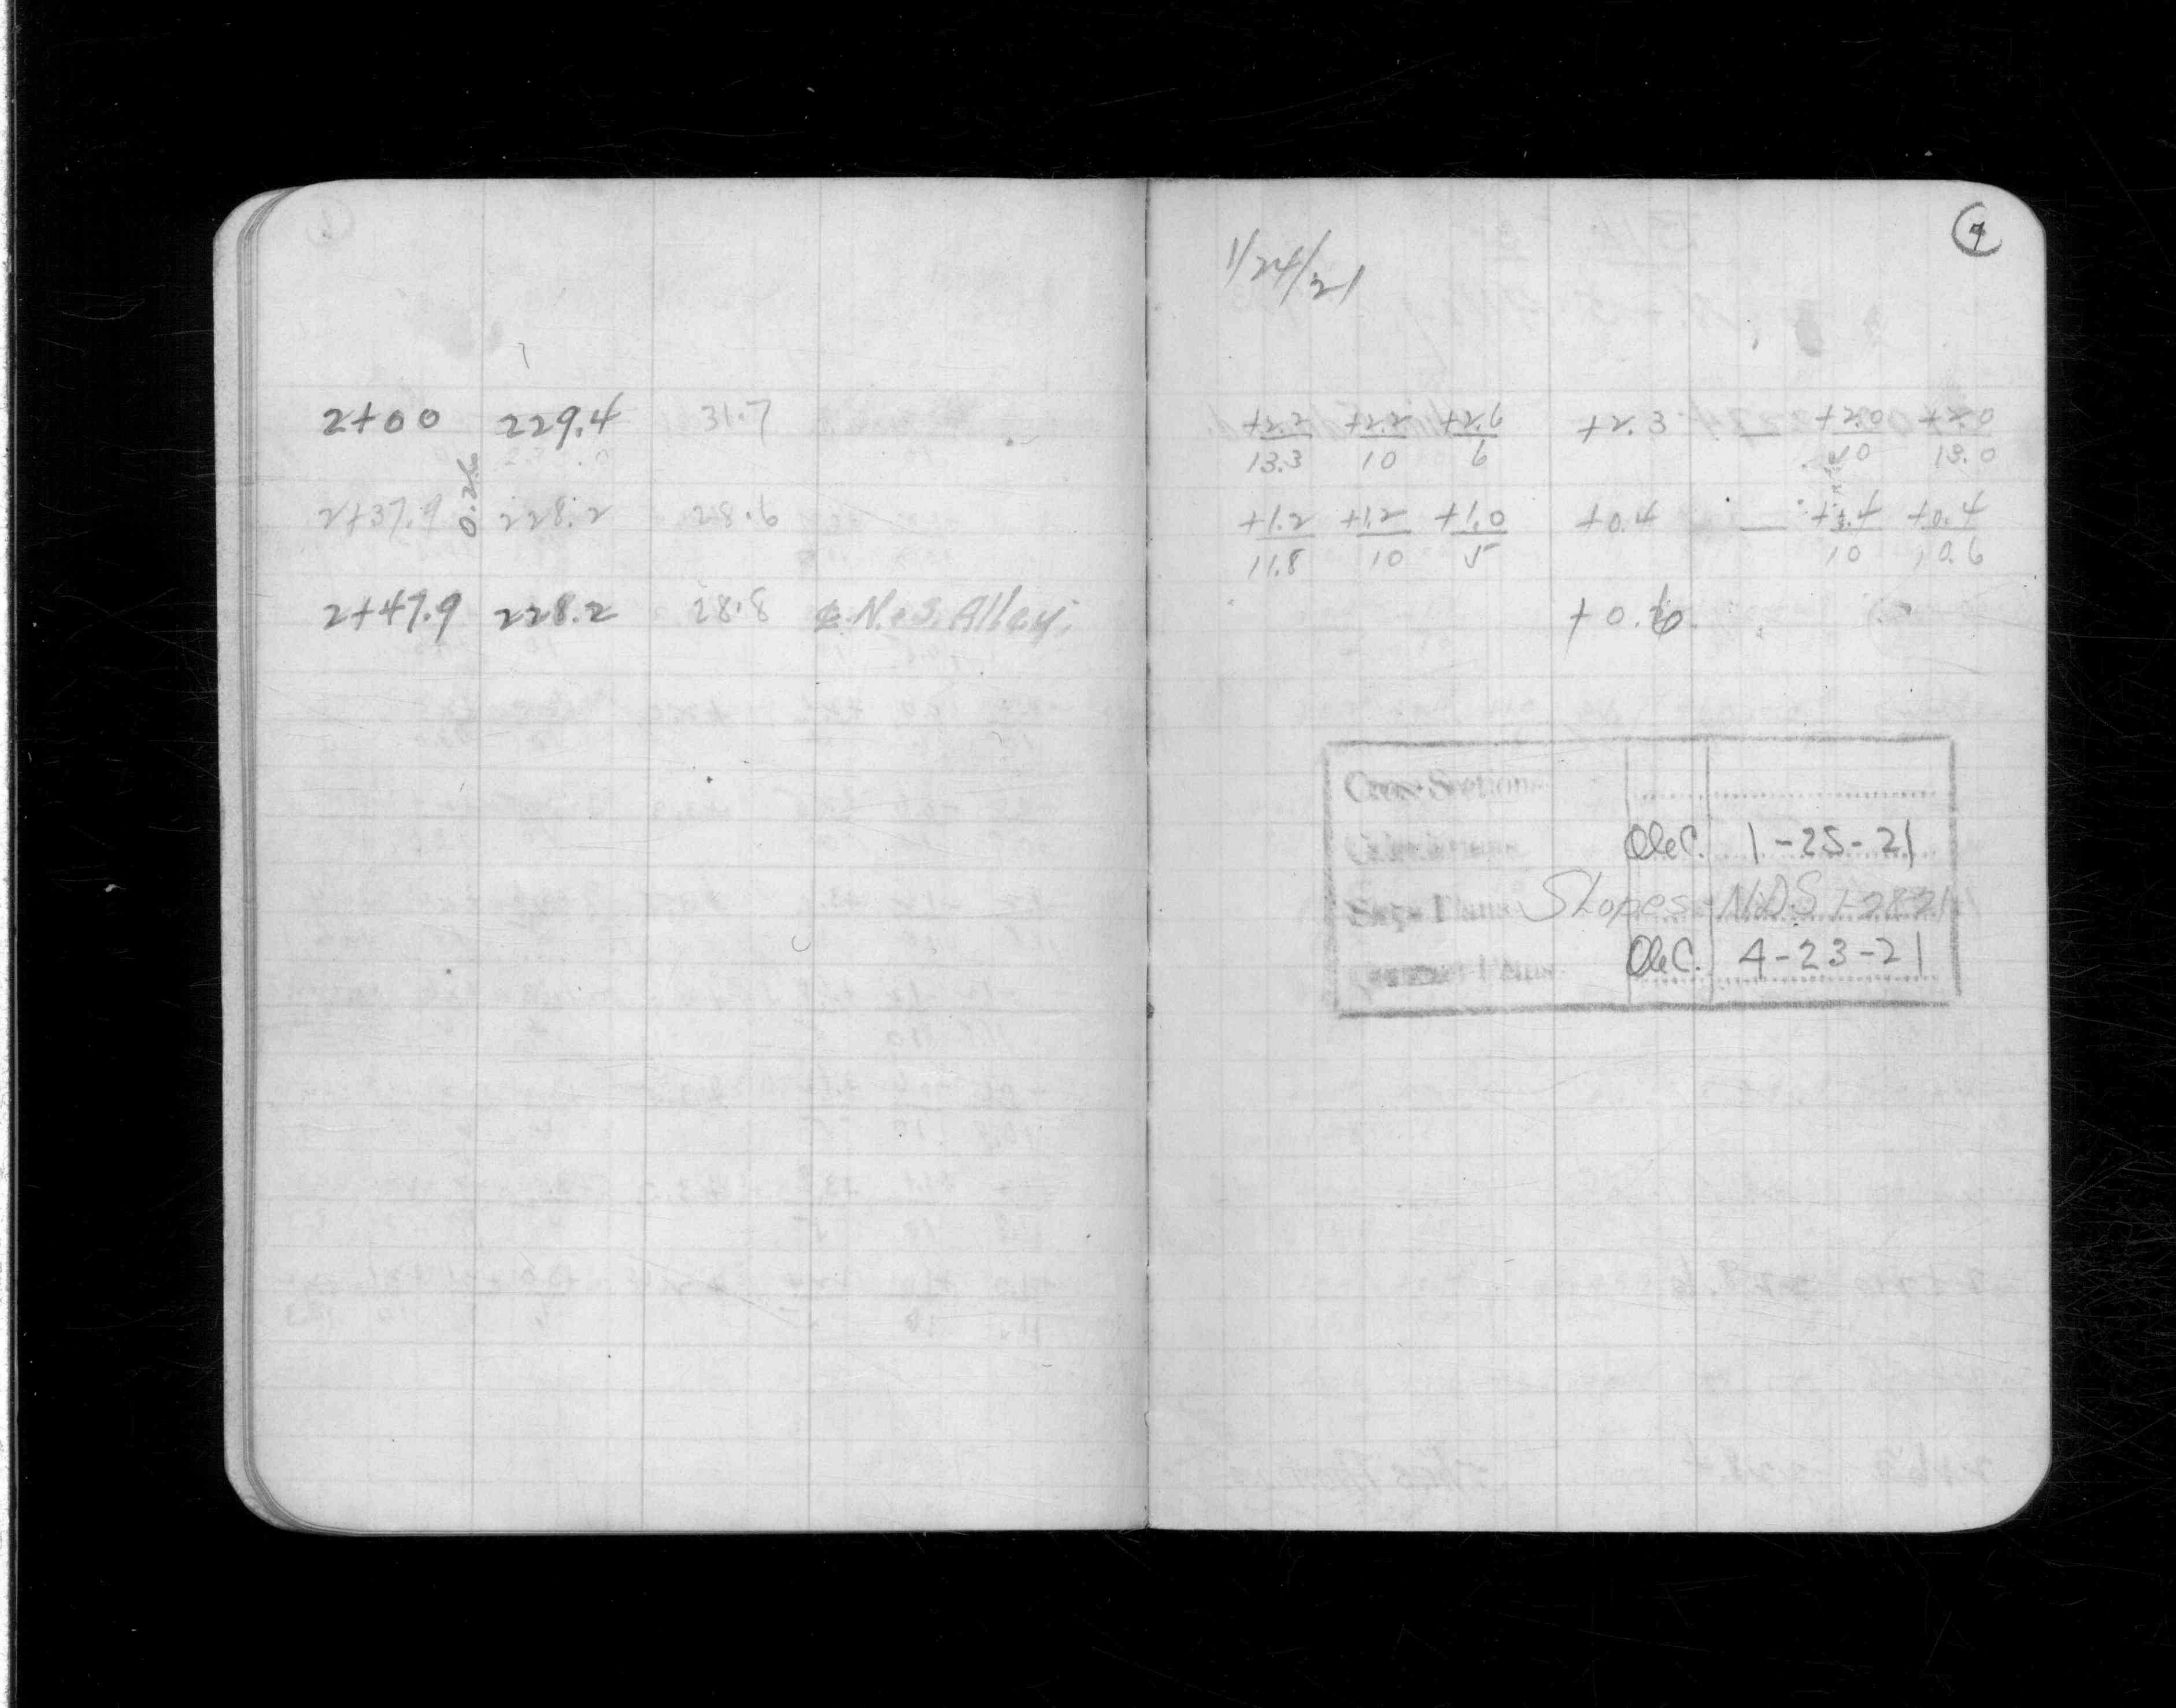 7
1/24/21
2+00 229.4 31.7 +2.2/13.3 +2.2/10 +2.6/6 +2.3 — +2.0/10 +2.0/13.0
0.26
2+37.9 228.2 28.6 +1.2/11.8 +1.2/10 +1.0/5 +0.4 — +.4/10 +0.4/10.6
2+47.9 228.2 28.8 ℄ N.&S. Alley. +0.6
Cross Sections
OleC. 1-25-21
Slopes - N.D.S 1-28-21
OleC. 4-23-21